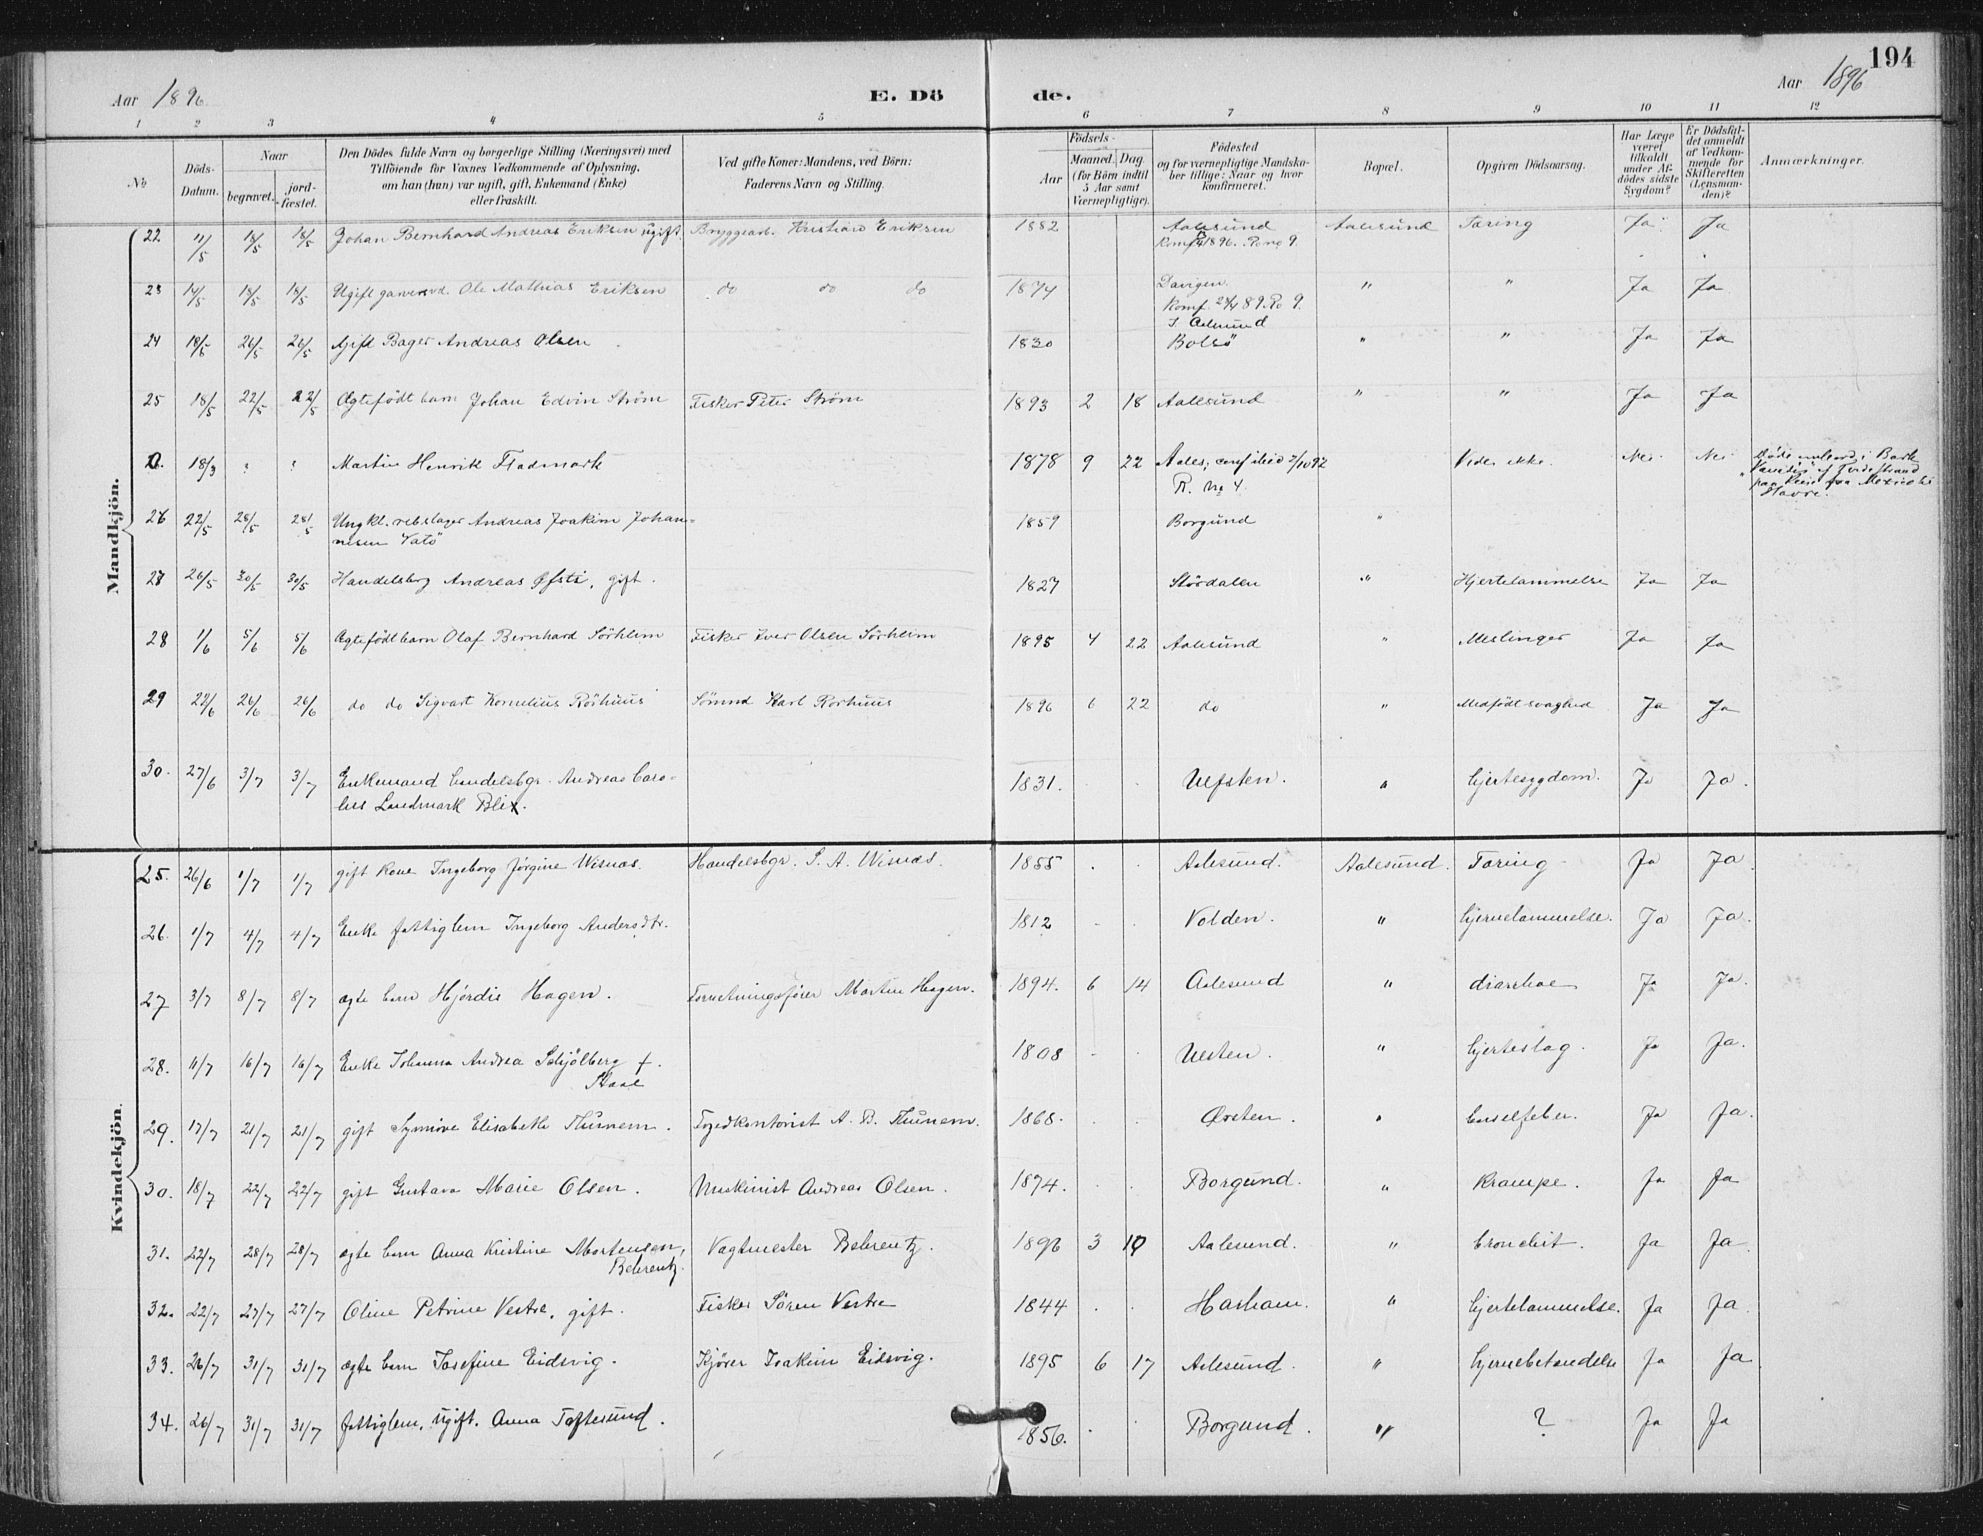 194
Aar 1896.
E. Dö
de.
Aar 1896
1 2 3 4 5 6 7 8 9 10 11 12
No
Döds-Datum.
Naar
begravet.
jord-fæstet.
Den Dödes fulde Navn og borgerlige Stilling (Næringsvei) med
Tilföiende for Voxnes Vedkommende af Oplysning,
om han (hun) var ugift, gift, Enkemand (Enke)
eller fraskilt.
Ved gifte Koner: Mandens, ved Börn:
Faderens Navn og Stilling.
Födsels-
Aar
Maaned. Dag.
(for Börn indtil
5 Aar samt
Værnepligtige).
Födested
og for værnepligtige Mandska-
ber tillige: Naar og hvor
konfirmeret.
Bopæl.
Opgiven Dödsaarsag.
Har Læge
været
tilkaldt
under Af-
dödes sidste
Sygdom?
Er Dödsfal-
det anmeldt
af Vedkom-
mende for
Skifteretten
(Lensman-
den)?
Anmærkninger.
Mandkjön.
22 11/5 18/5 18/5 Johan Bernhard Andreas Eriksen ugift. Bryggearb. Kristian Eriksen 1882 Aalesund Aalesund Tæring Ja Ja
Konf. 1896. Ro no 9.
23 14/5 18/5 18/5 Ugift garversvd. Ole Mathias Eriksen do do do 1874 Davigen. " " Ja Ja
Konf. 28/4 89. Ro 9.
I. Aalesund
24 18/5 26/5 26/5 Gift Bager Andreas Olsen 1830 Bolsö " " Ja Ja
25 18/5 22/5 22/5 Ægtefödt barn Johan Edvin Ström Fisker Peter Ström 1893 2 18 Aalesund " " Ja Ja
0. 18/3 : : Martin Henrik Fladmark 1878 9 22 Aales; conf ibid 2/10 92 Vides ikke. Nei Nei
R. no 4.
paa Reise fra Mexico til
Havre.
26 22/5 28/5 28/5 Ungkl. rebslager Andreas Joakim Johan- 1859 Borgund "
nesen Vatö
27 26/5 30/5 30/5 Handelsbrg Andreas Öfsti, gift. 1827 Stördalen " Hjertelammelse Ja Ja
28 1/6 5/6 5/6 Ægtefödt barn Olaf Bernhard Sörheim Fisker Iver Olsen Sörheim 1895 4 22 Aalesund " Meslinger Ja Ja
29 22/6 26/6 26/6 do do Sigvart Kornelius Rörhuus Sömnd Karl Rörhuus 1896 6 22 do " Medfödt svaghed Ja Ja
30. 27/6 3/7 3/7 Enkemand handelsbgr. Andreas Caro- 1831. Ulfsten. " hjertesygdom. Ja Ja.
lius Landmark Blix.
Kvindekjön.
25. 26/6 1/7 1/7 gift kone Ingeborg Jörgine Wisnæs. Handelsbgr. S. A. Wisnæs. 1855 Aalesund. Aalesund. Tæring Ja Ja.
26. 1/7 4/7 4/7 Enke fattiglem Ingeborg Andersdtr. 1812 Volden. " hjernelammelse. Ja Ja.
27 3/7 8/7 8/7 ægte barn Hjördis Hagen. Forretningsförer Martin Hagen. 1894. 6 14 Aalesund " diarrhoe Ja Ja.
28. 11/7 16/7 16/7 Enke Johanna Andrea Schjölberg f. 1808 Ulsten. " hjerteslag. Ja Ja.
Staae
29. 17/7 21/7 21/7 gift Synnöve Elisabeth Thunem. Fogedkontorist A. B. Thunem. 1868. Örsten. " barselfeber. Ja Ja.
30. 18/7 22/7 22/7 gift Gustava Marie Olsen. Maskinist Andreas Olsen. 1874. Borgund. " Krampe. Ja Ja
31. 22/7 28/7 28/7 ægte barn Anna Kristine Mortensen, Vagtmester Behrentz. 1896 3 10 Aalesund. " bronchit. Ja Ja.
Behrentz.
32. 22/7 27/7 27/7 Oline Petrine Vestre, gift. Fisker Sören Vestre 1844 Harham. " hjertelammelse. Ja Ja.
33. 26/7 31/7 31/7 ægte barn Josefine Eidsvig. Kjörer Joakim Eidsvig. 1895 6 17 Aalesund. " hjernebetændelse Ja Ja
34. 26/7 31/7 31/7 fattiglem, ugift. Anna Toftesund. 1856. Borgund. " ? Ja Ja